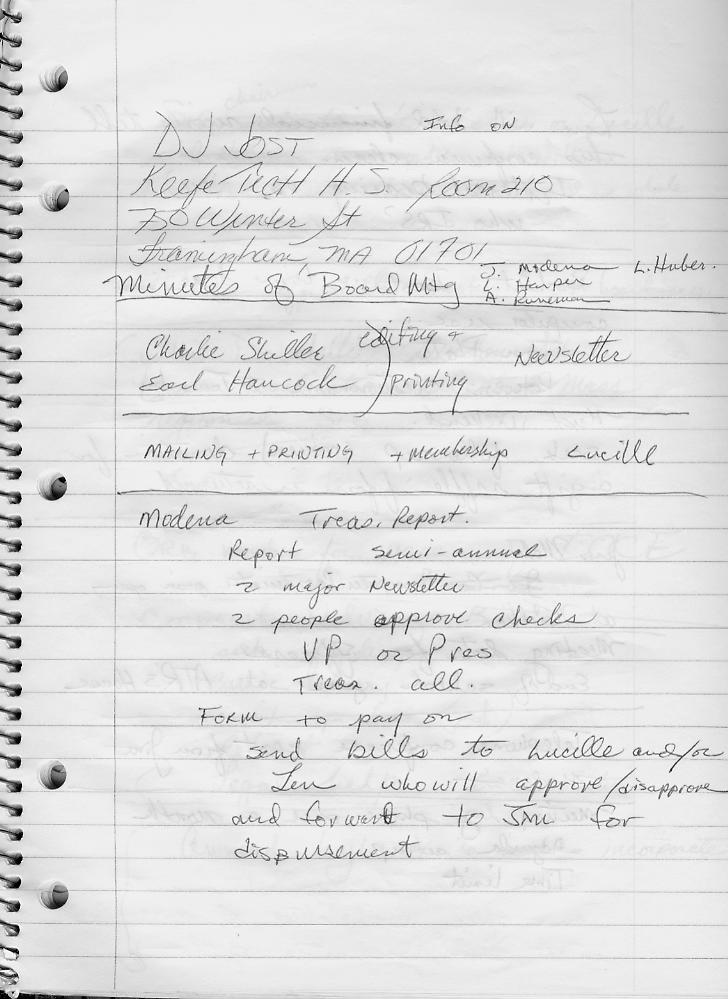 Info on
DJ Jost
Keefe Tech H.S. Room 210
750 Winter St
Framingham, MA 01701
J. Modena L. Huber.
L. Harper
Minutes of Board Mtg A. Runeman
Charlie Shiller editing + Newsletter
Earl Hancock ) printing
MAILING + PRINTING + membership Lucille
Modena Treas. Report.
Report semi-annual
2 major Newsletter
2 people approve checks
VP or Pres
Treas. all.
Form to pay on
send bills to Lucille and/or
Len who will approve/disapprove
and forward to Jim for
disbursement